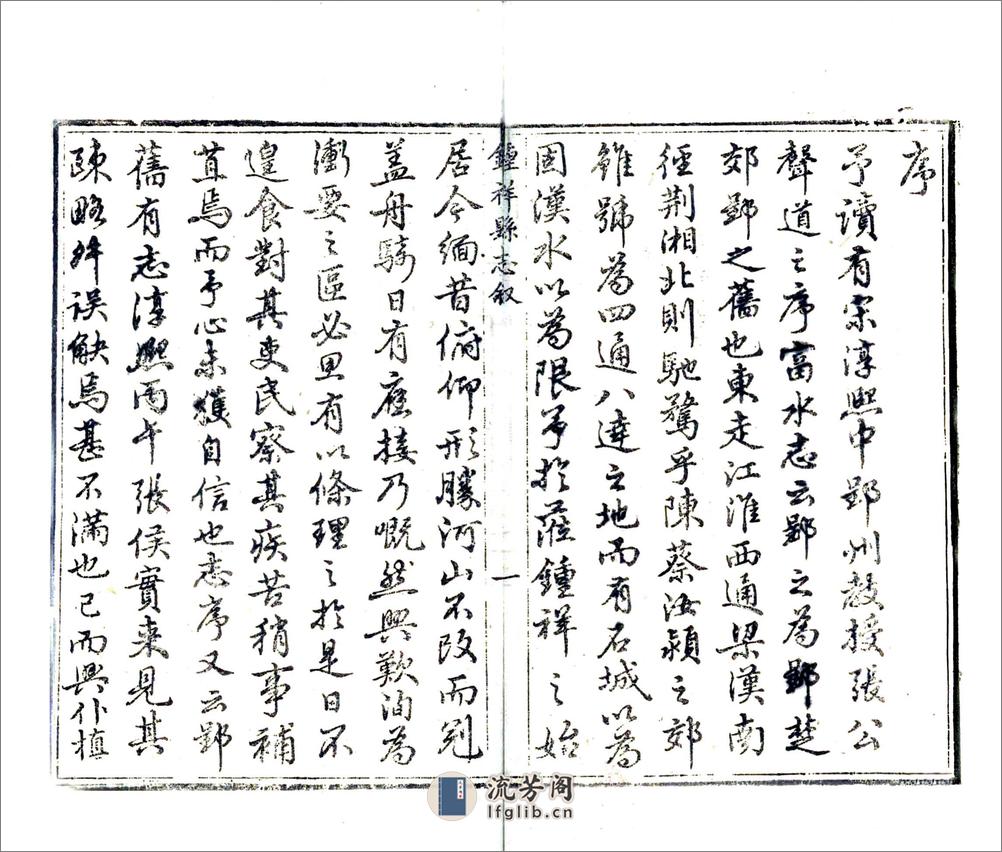 序
予讀有宋淳熙中郢州教授張公
聲道之序富水志云郢之為郢楚
郊郢之舊也東走江淮西通梁漢南
徑荆湘北則馳騖乎陳蔡汝潁之郊
雖號為四通八達之地而有石城以為
固漢水以為限予於蒞鍾祥之始
鍾祥縣志敘
一
居今緬昔俯仰形勝河山不改而冠
盖舟騎日有應接乃嘅然興歎洵為
衝要之區必思有以條理之於是日不
遑食對其吏民察其疾苦稍事補
苴焉而予心未獲自信也志序又云郢
舊有志淳熙丙午張侯實来見其
踈略舛误觖焉甚不滿也已而興仆植
流芳阁
lfglib.cn